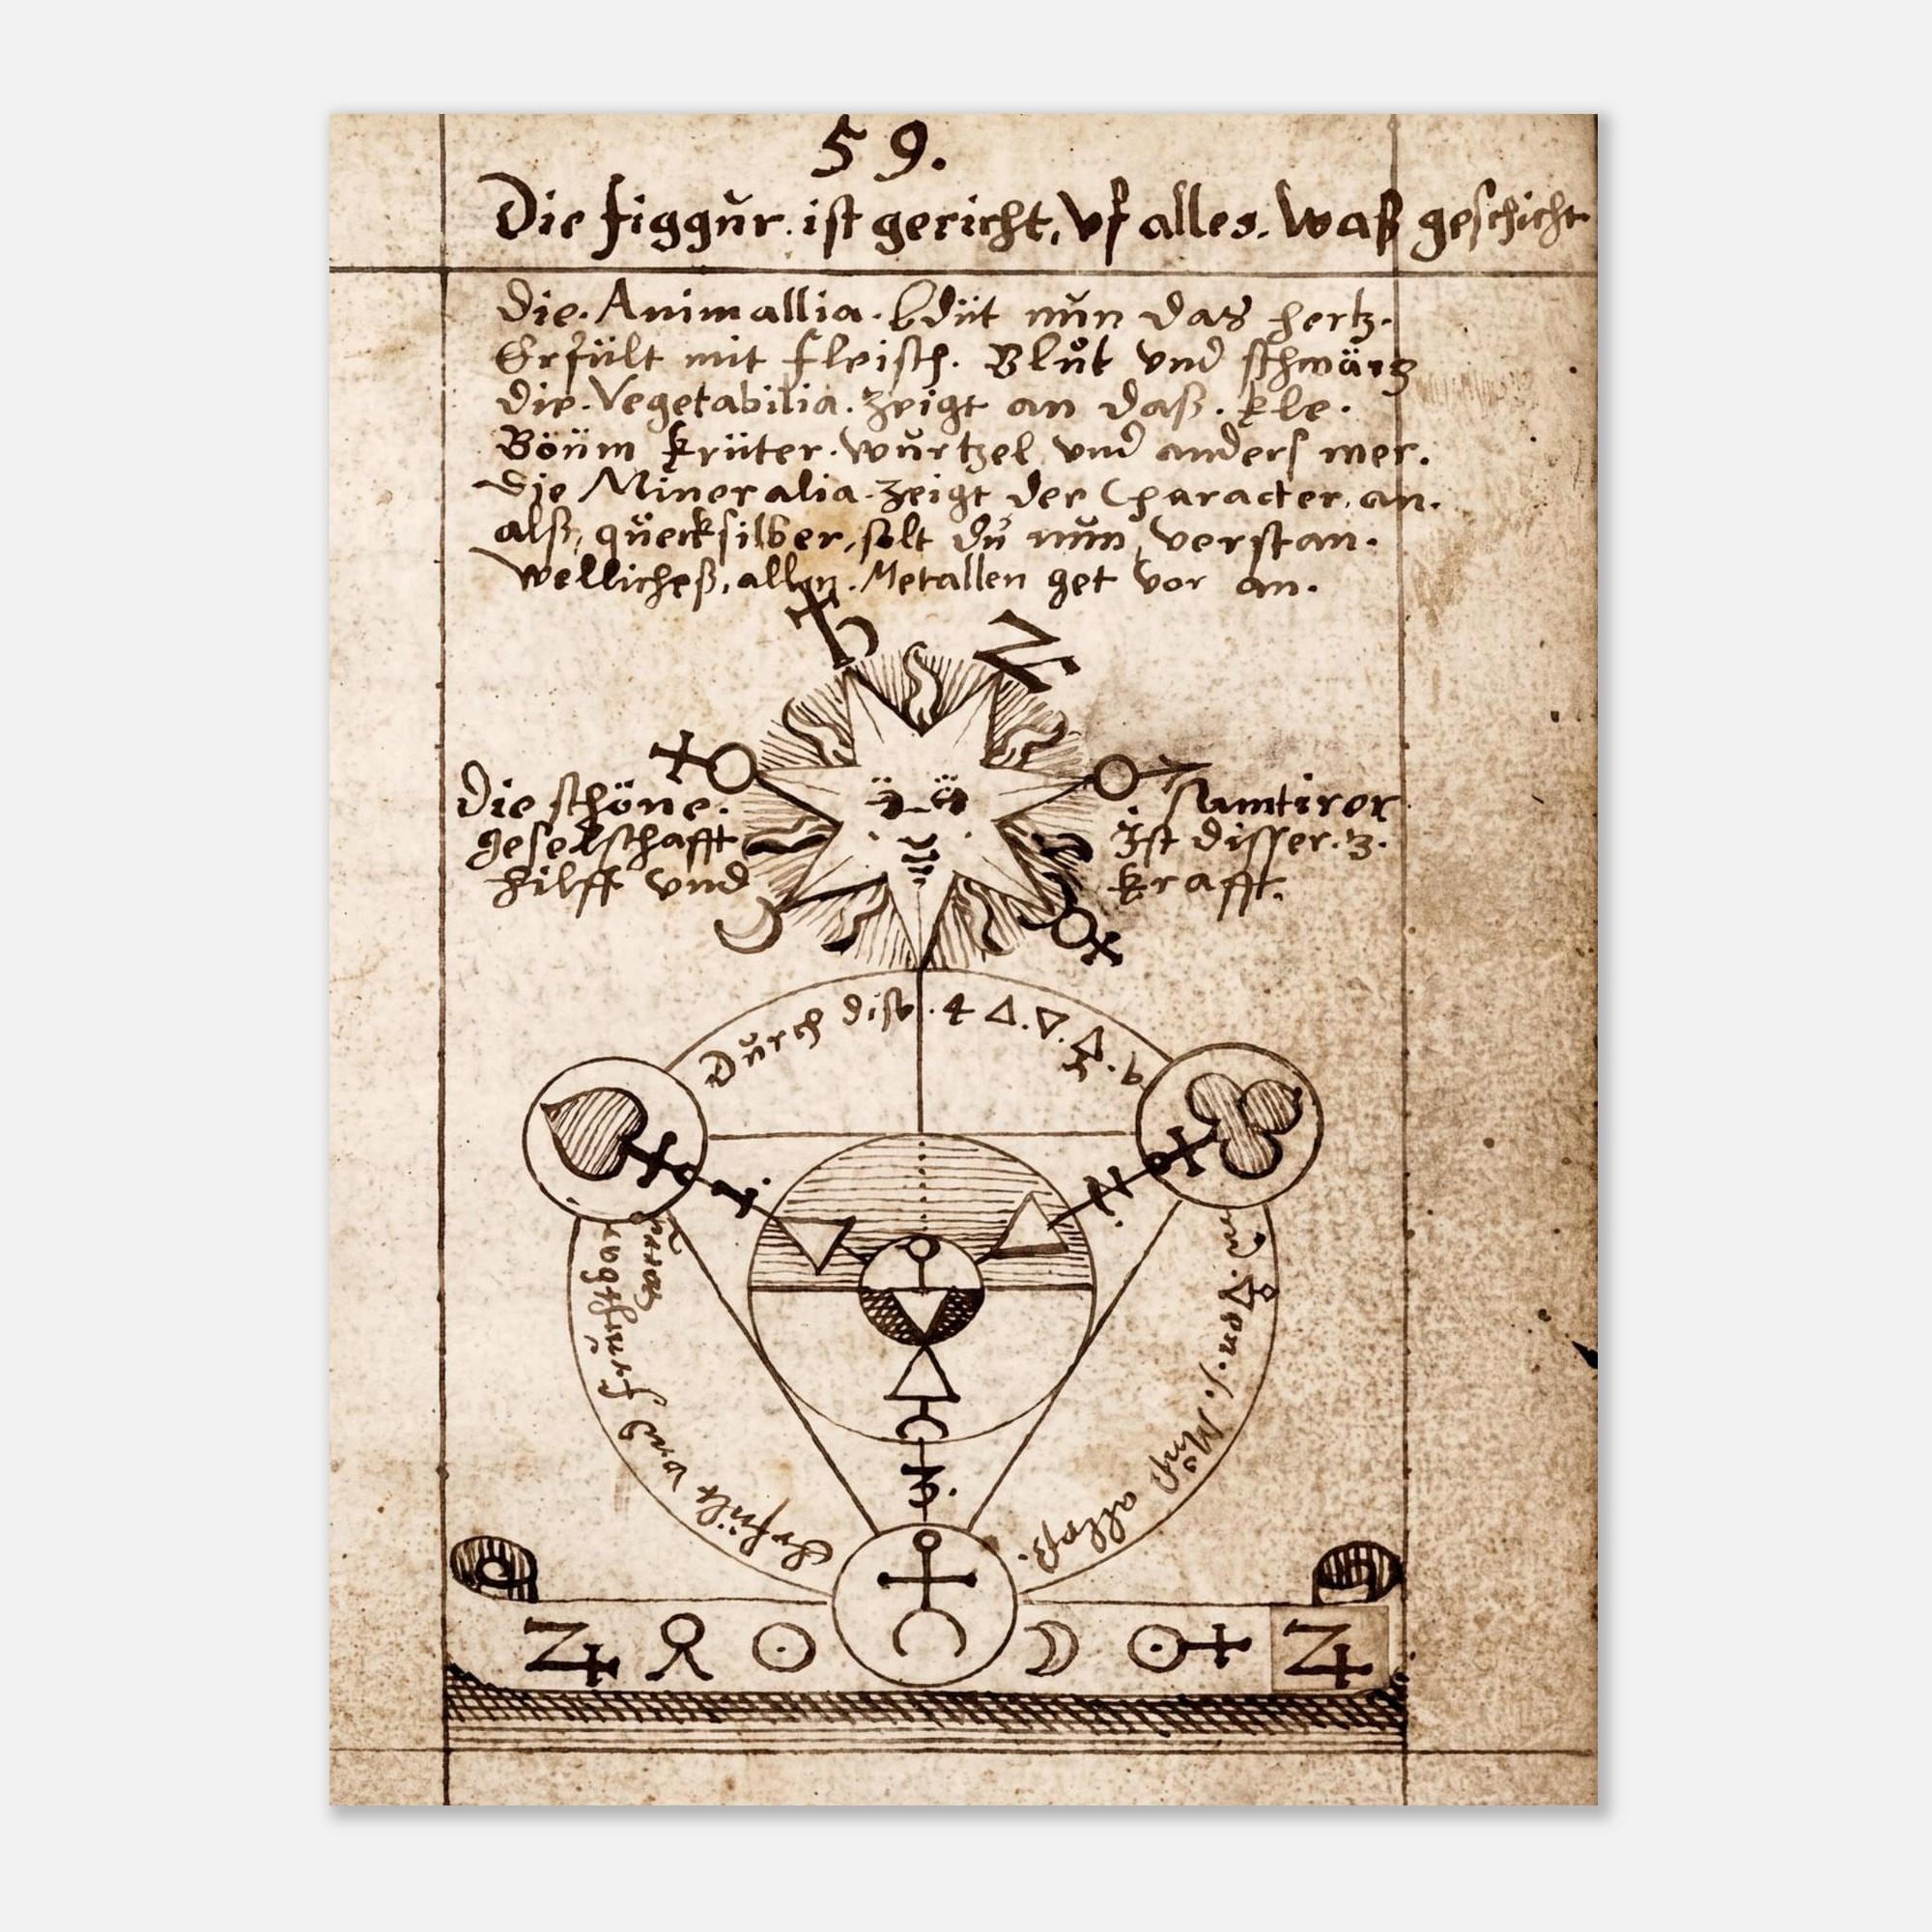 59.
Die figgŭr. ist gericht, vf alles. waß geschicht
Die. Animallia. bdüt nŭn das hertz.
Erfült mit fleisch. Blůt vnd schwärtz
die. Vegetabilia. zeigt an daß. kle.
Böüm krüter. wŭrtzel vnd anders mer.
Die Mineralia. zeigt der Character. an.
alß, qŭecksilber, solt dŭ nŭn verstan.
wellicheß, allen. Metallen get vor an.
Die schöne.
geselschafft
hilff vnd
Ist disser. 3.
krafft.
Dŭrch dise. 4
Erfült vnd
Von. j. allß.